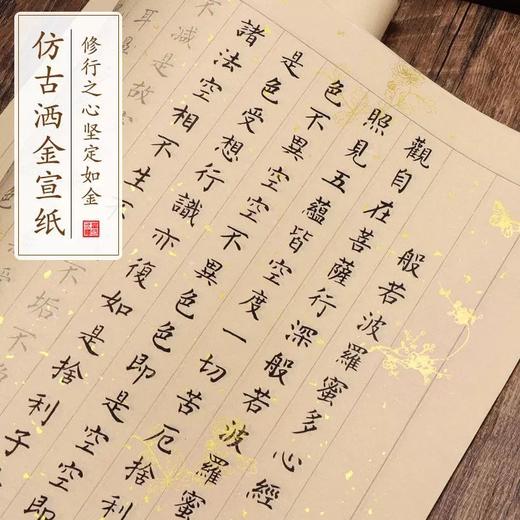 修行之心坚定如金
仿古洒金宣纸
般若波羅蜜多心經
觀自在菩薩行深般若波羅蜜
照見五蘊皆空度一切苦厄捨利
色不異空空不異色色即是空空即
是色受想行識亦復如是捨利子
諸法空相不生不
垢不
不減是故空
耳